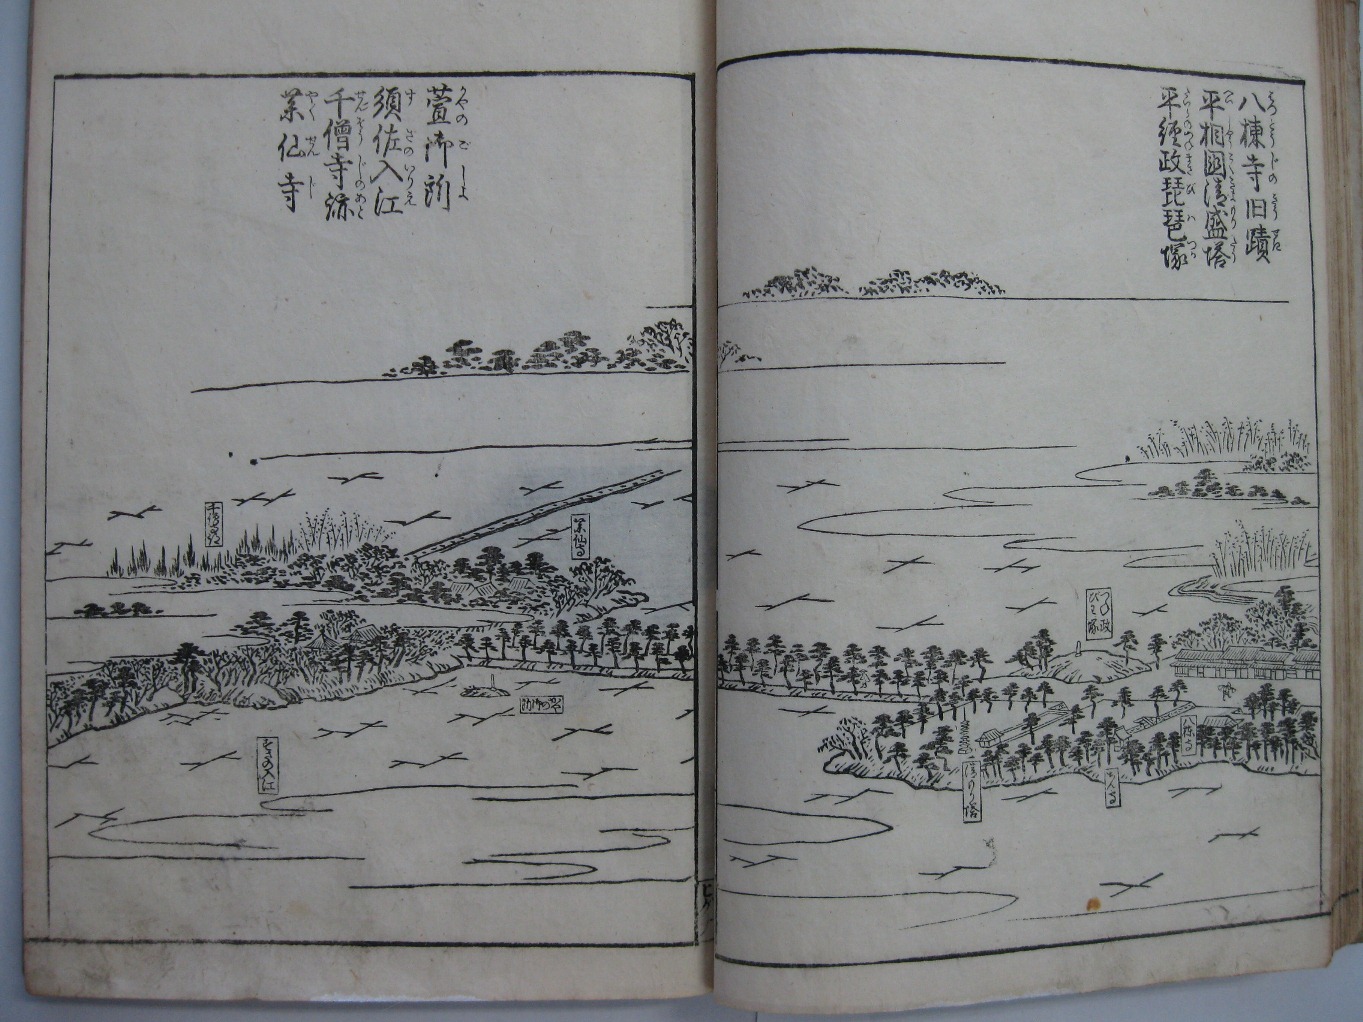 八棟寺旧蹟
平相國清盛塔
平経政琵琶塚
萱御所
須佐入江
千僧寺跡
薬仙寺
つね政
びは塚
清もり塔
八棟寺
薬仙寺
千僧寺跡
かやの御所
すさの入江